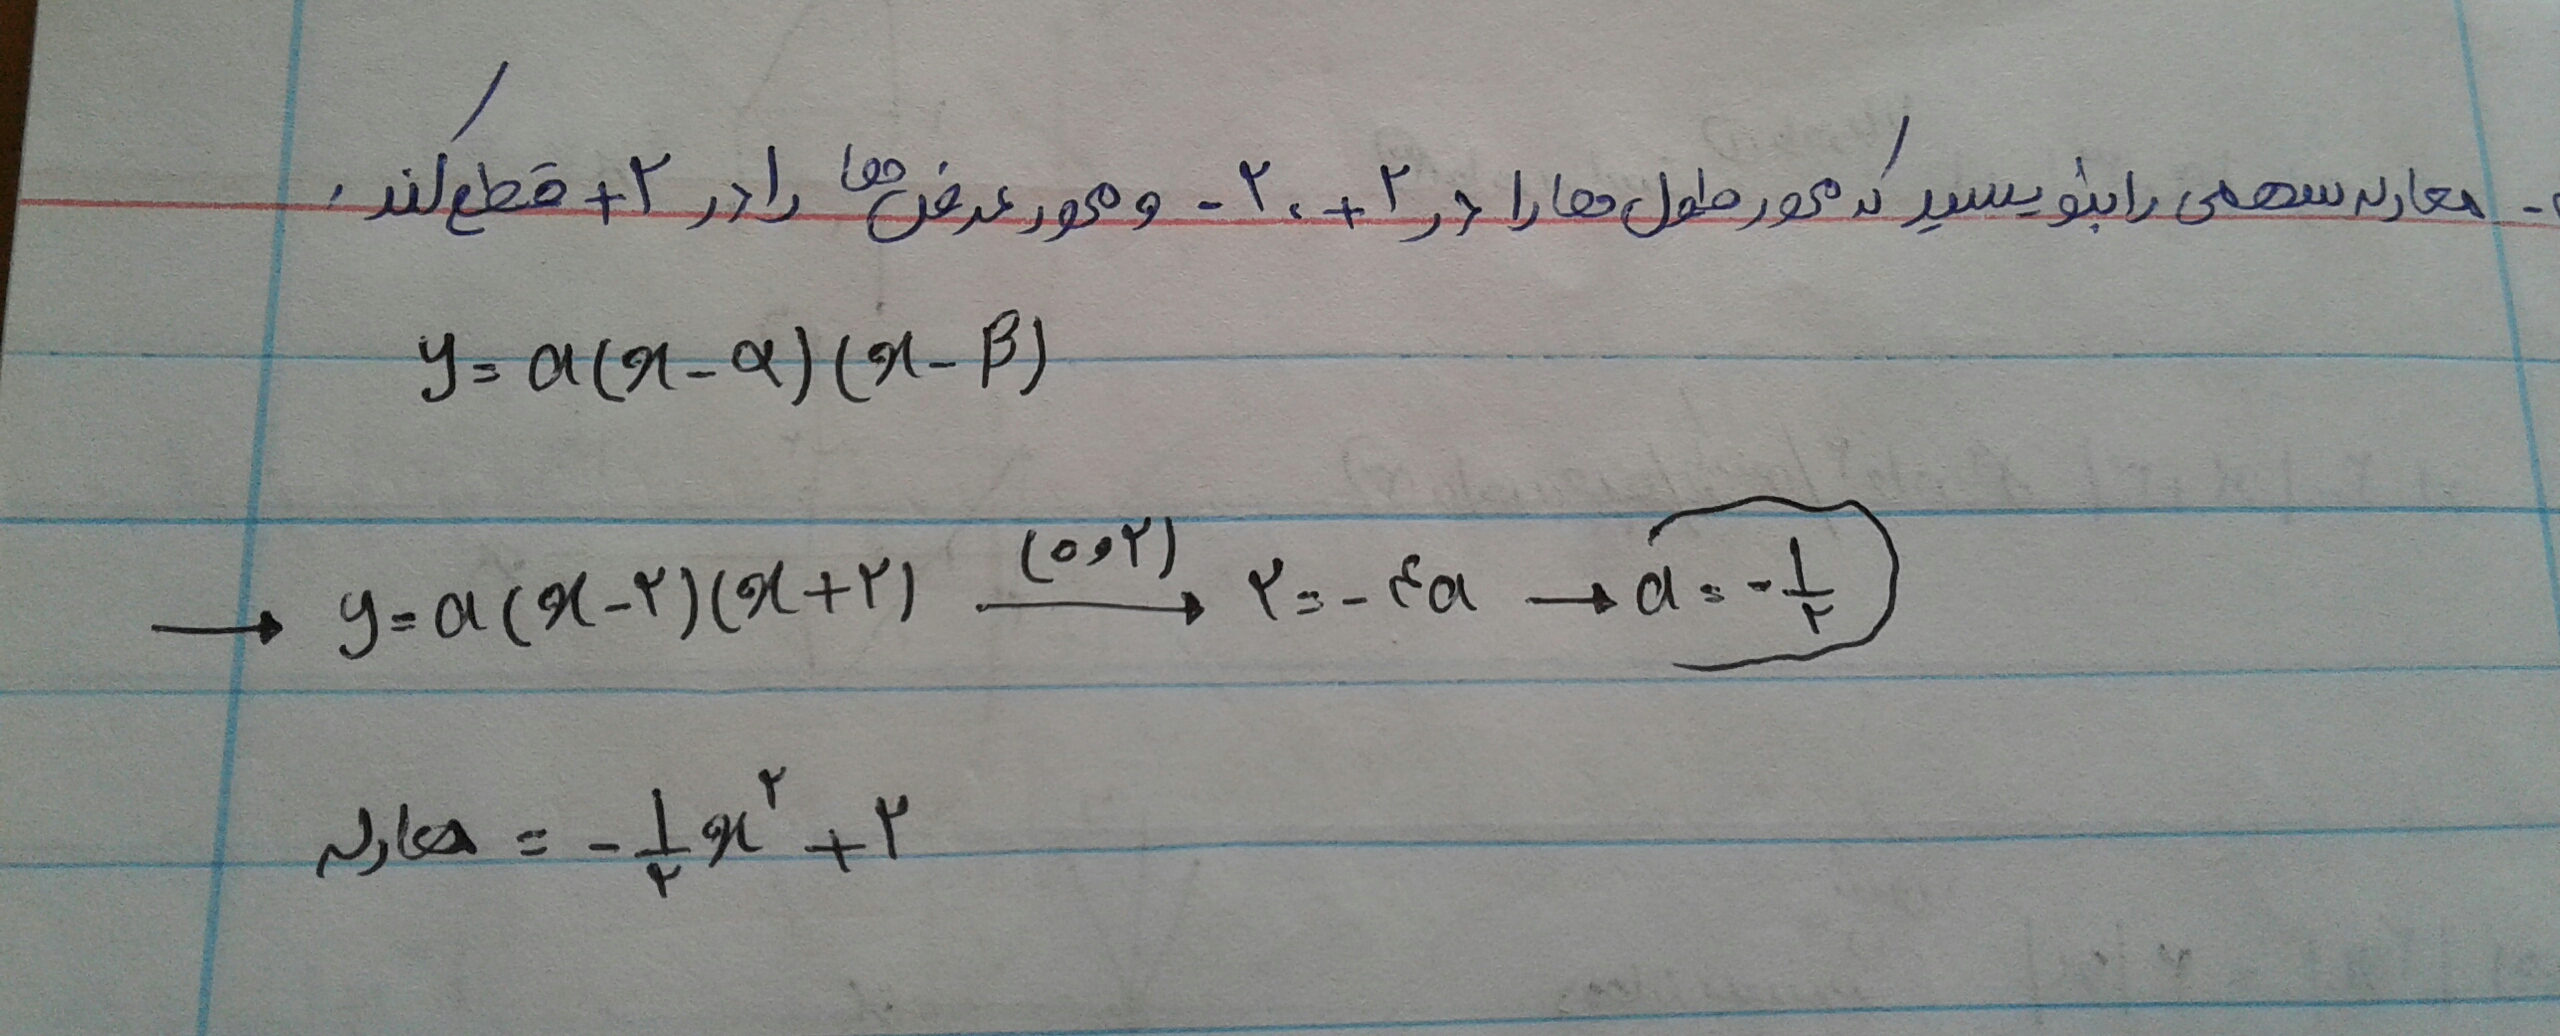 - معادله سهمی را بنویسید که محور طول ها را در ۲+ ، ۲- و محور عرض ها را در ۲+ قطع کند.
y = a(x - α)(x - β)
→ y = a(x-۲)(x+۲) (۰و۲)→ ۲ = -۴a → a = -۱/۲
معادله = -۱/۲ x^۲ + ۲